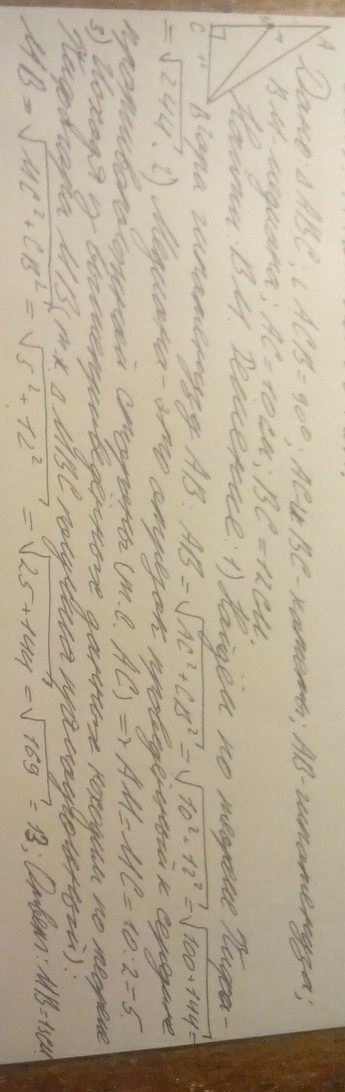 Дано: Δ ABC; ∟ACB=90°; AC и BC-катеты; AB-гипотенуза;
BM-медиана; AC=10см; BC=12см.
Найти: BM. Решение: 1) Найдём по теореме Пифа-
гора гипотенузу AB: AB = √AC²+CB² = √10²+12² = √100+144 =
= √244. 2) Медиана - это отрезок проведённый к середине
противоположной стороны (т.е. AC) => AM=MC=10:2=5.
3) Исходя из вышеприведённых данных находим по теореме
Пифагора MB (т.к. Δ MBC получился прямоугольный):
MB = √MC²+CB² = √5²+12² = √25+144 = √169 = 13; Ответ: MB=13см.
A
M
C
B